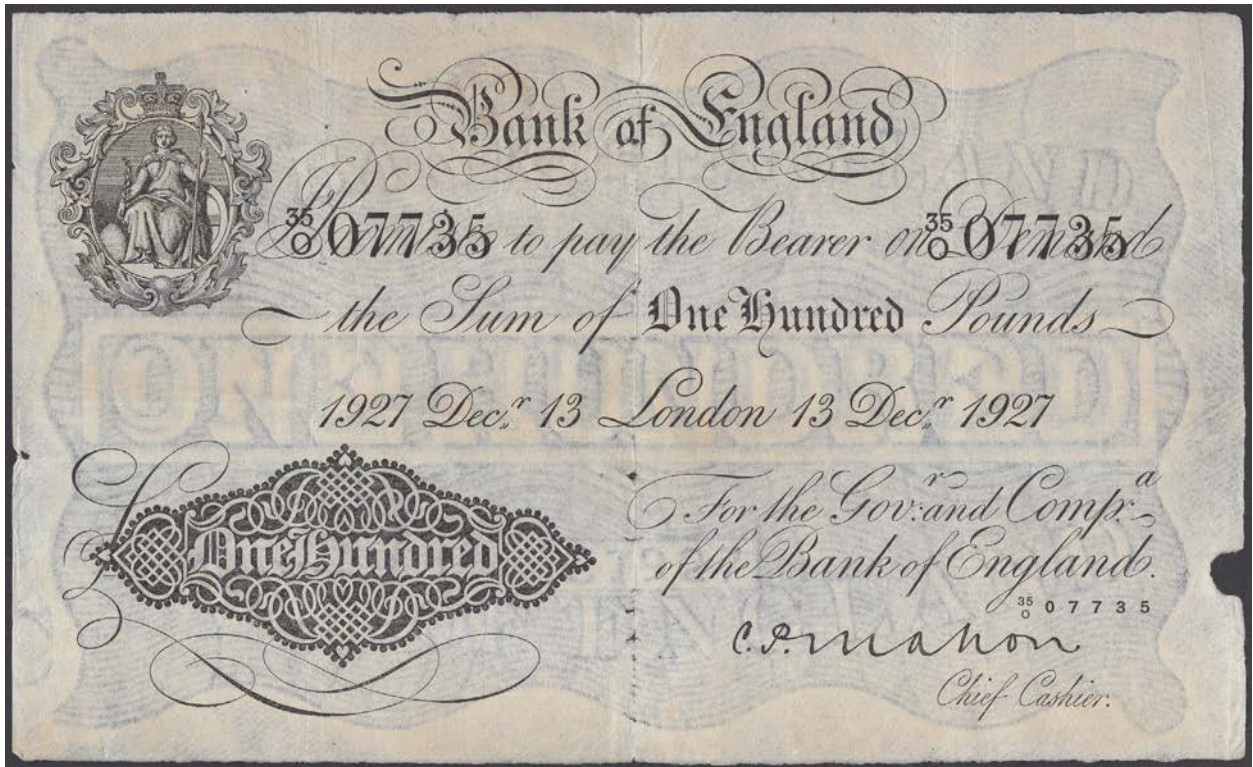 Bank of England
35/O 07735 35/O 07735
I Promise to pay the Bearer on Demand
the Sum of One Hundred Pounds
1927 Decr 13 London 13 Decr 1927
£ One Hundred
For the Govr: and Compa
of the Bank of England.
35/O 07735
C.P. Mahon
Chief Cashier.